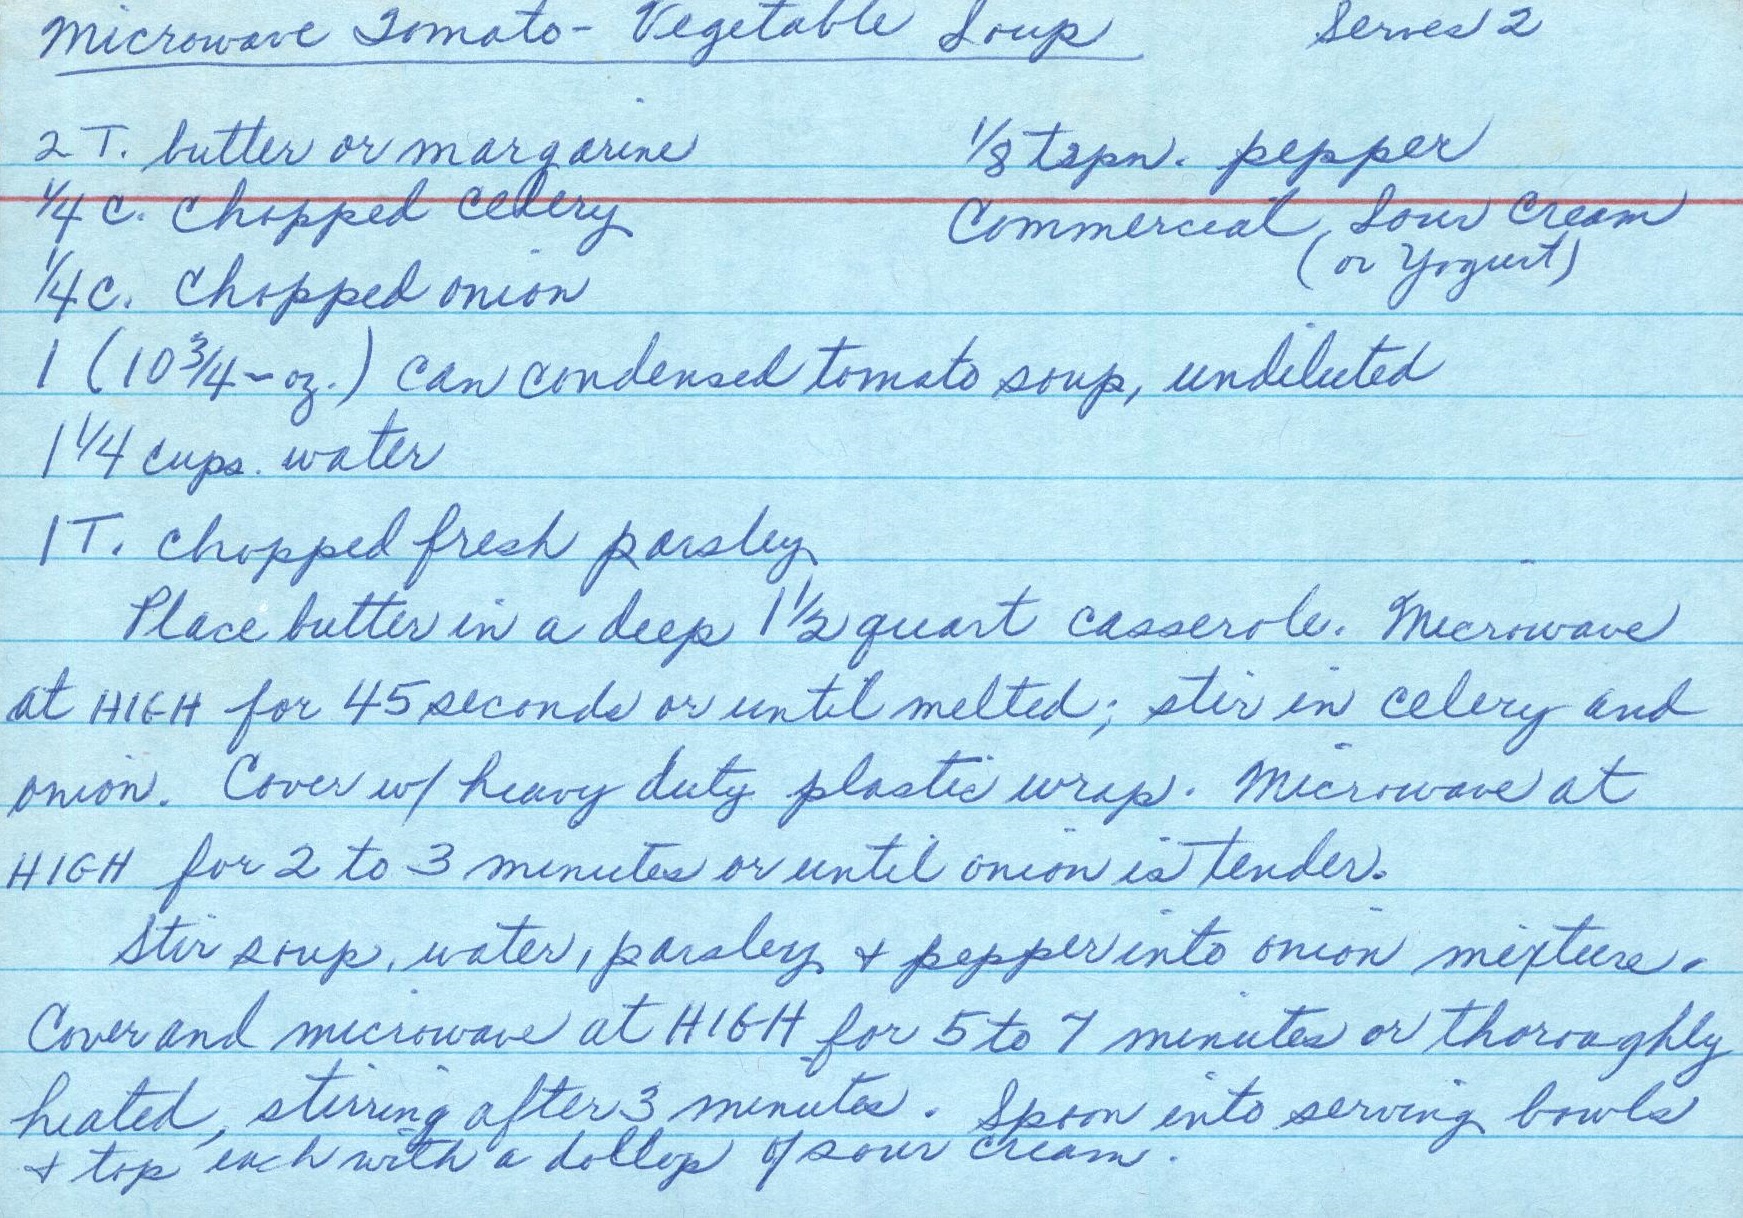 Microwave Tomato-Vegetable Soup Serves 2
2 T. butter or margarine 1/8 tspn. pepper
1/4 c. chopped celery Commercial Sour Cream
(or Yogurt)
1/4 c. chopped onion
1 (10 3/4-oz.) can condensed tomato soup, undiluted
1 1/4 cups. water
1 T. chopped fresh parsley
Place butter in a deep 1 1/2 quart casserole. Microwave
at HIGH for 45 seconds or until melted; stir in celery and
onion. Cover w/ heavy duty plastic wrap. Microwave at
HIGH for 2 to 3 minutes or until onion is tender.
Stir soup, water, parsley & pepper into onion mixture.
Cover and microwave at HIGH for 5 to 7 minutes or thoroughly
heated, stirring after 3 minutes. Spoon into serving bowls
& top each with a dollop of sour cream.